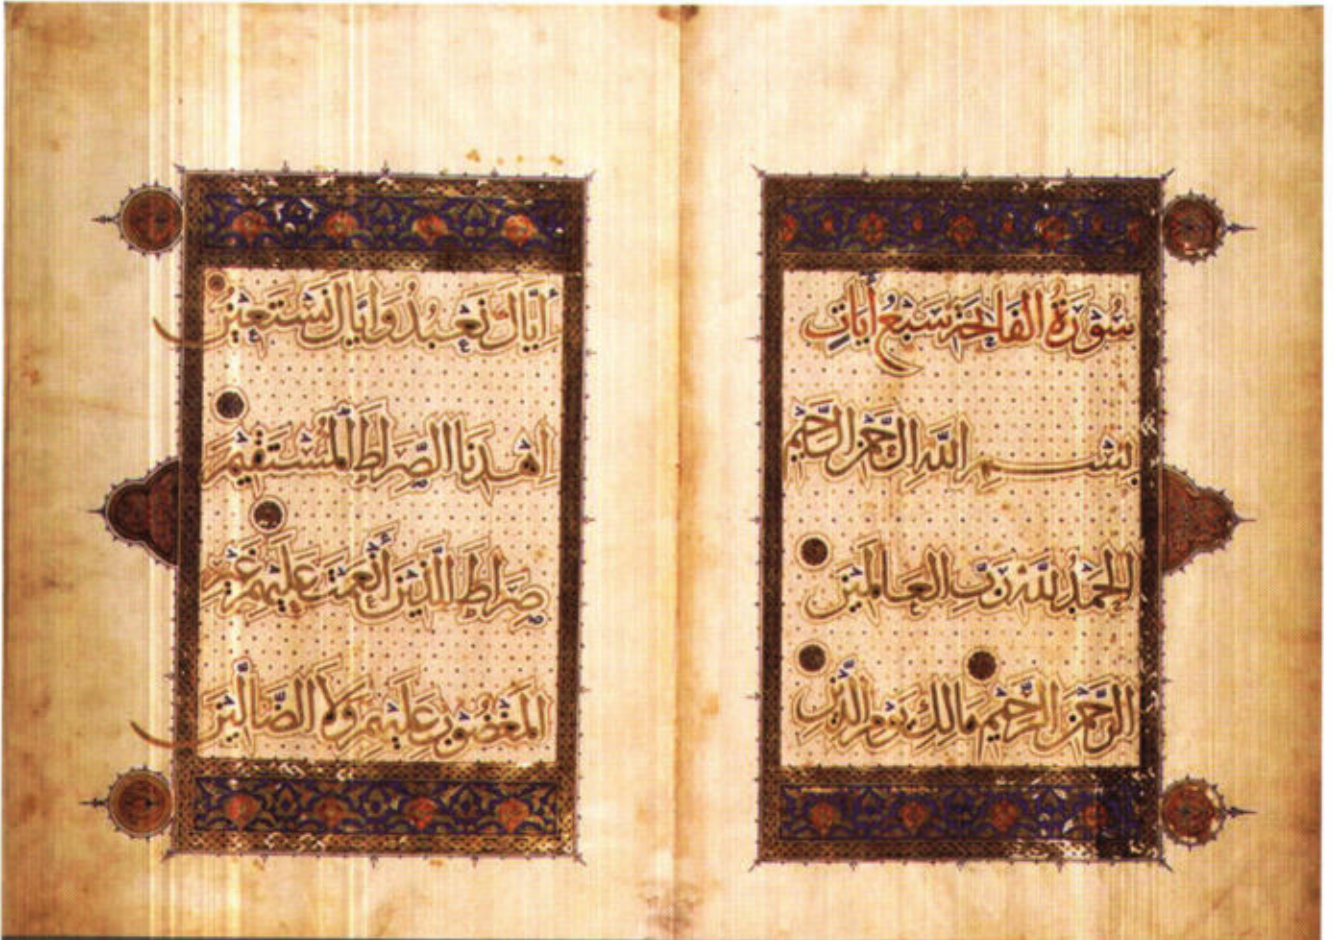 سُورَةُ الفَاتِحَةِ سَبْعُ أَيَاتٍ
بِسْمِ اللَّهِ الرَّحْمَنِ الرَّحِيمِ
الحَمْدُ لِلَّهِ رَبِّ العَالَمِينَ
الرَّحْمَنِ الرَّحِيمِ مَالِكِ يَوْمِ الدِّينِ
اِيَّاكَ نَعْبُدُ وَاِيَّاكَ نَسْتَعِينُ
اِهْدِنَا الصِّرَاطَ الْمُسْتَقِيمَ
صِرَاطَ الَّذِينَ أَنْعَمْتَ عَلَيْهِمْ غَيْرِ
المَغْضُوبِ عَلَيْهِمْ وَلَا الضَّالِّينَ